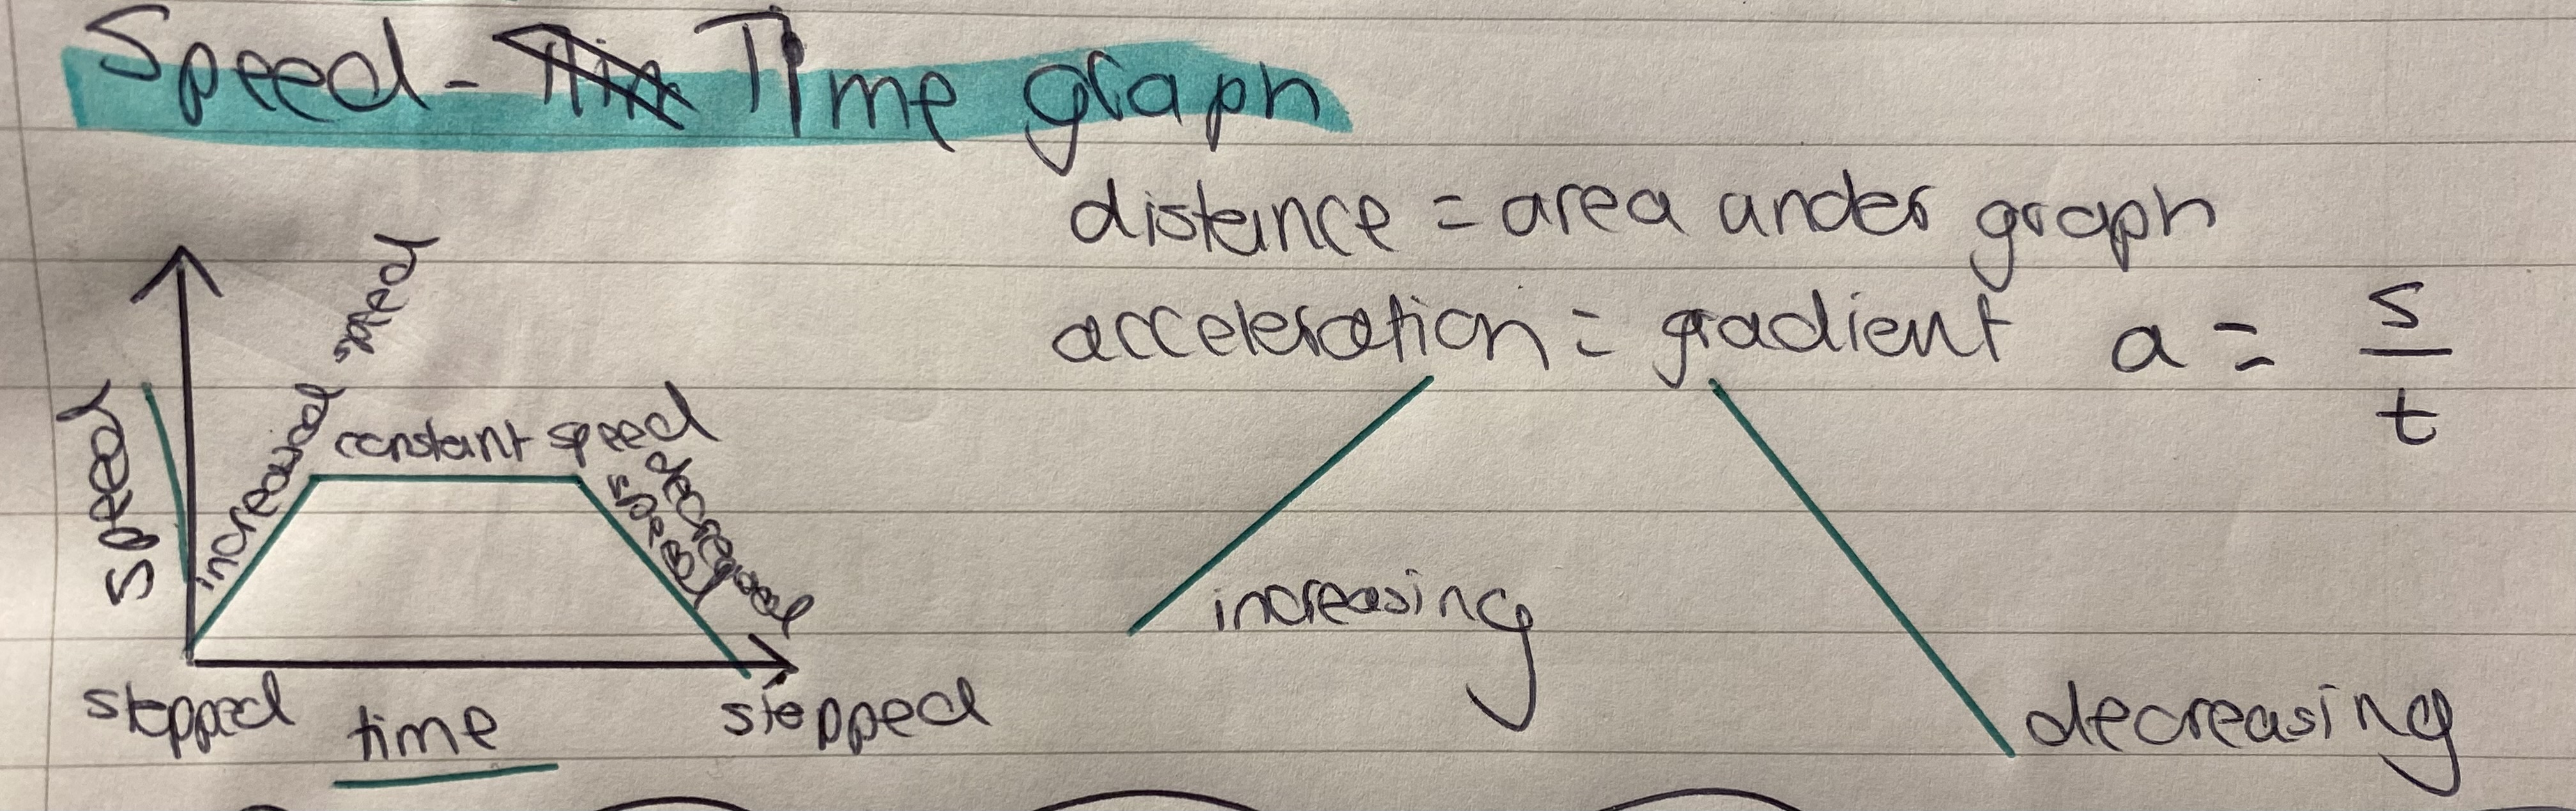 Speed - Time graph
distance = area under graph
acceleration = gradient a = s/t
speed
increased speed
constant speed
decreased speed
stopped
time
stopped
increasing
decreasing